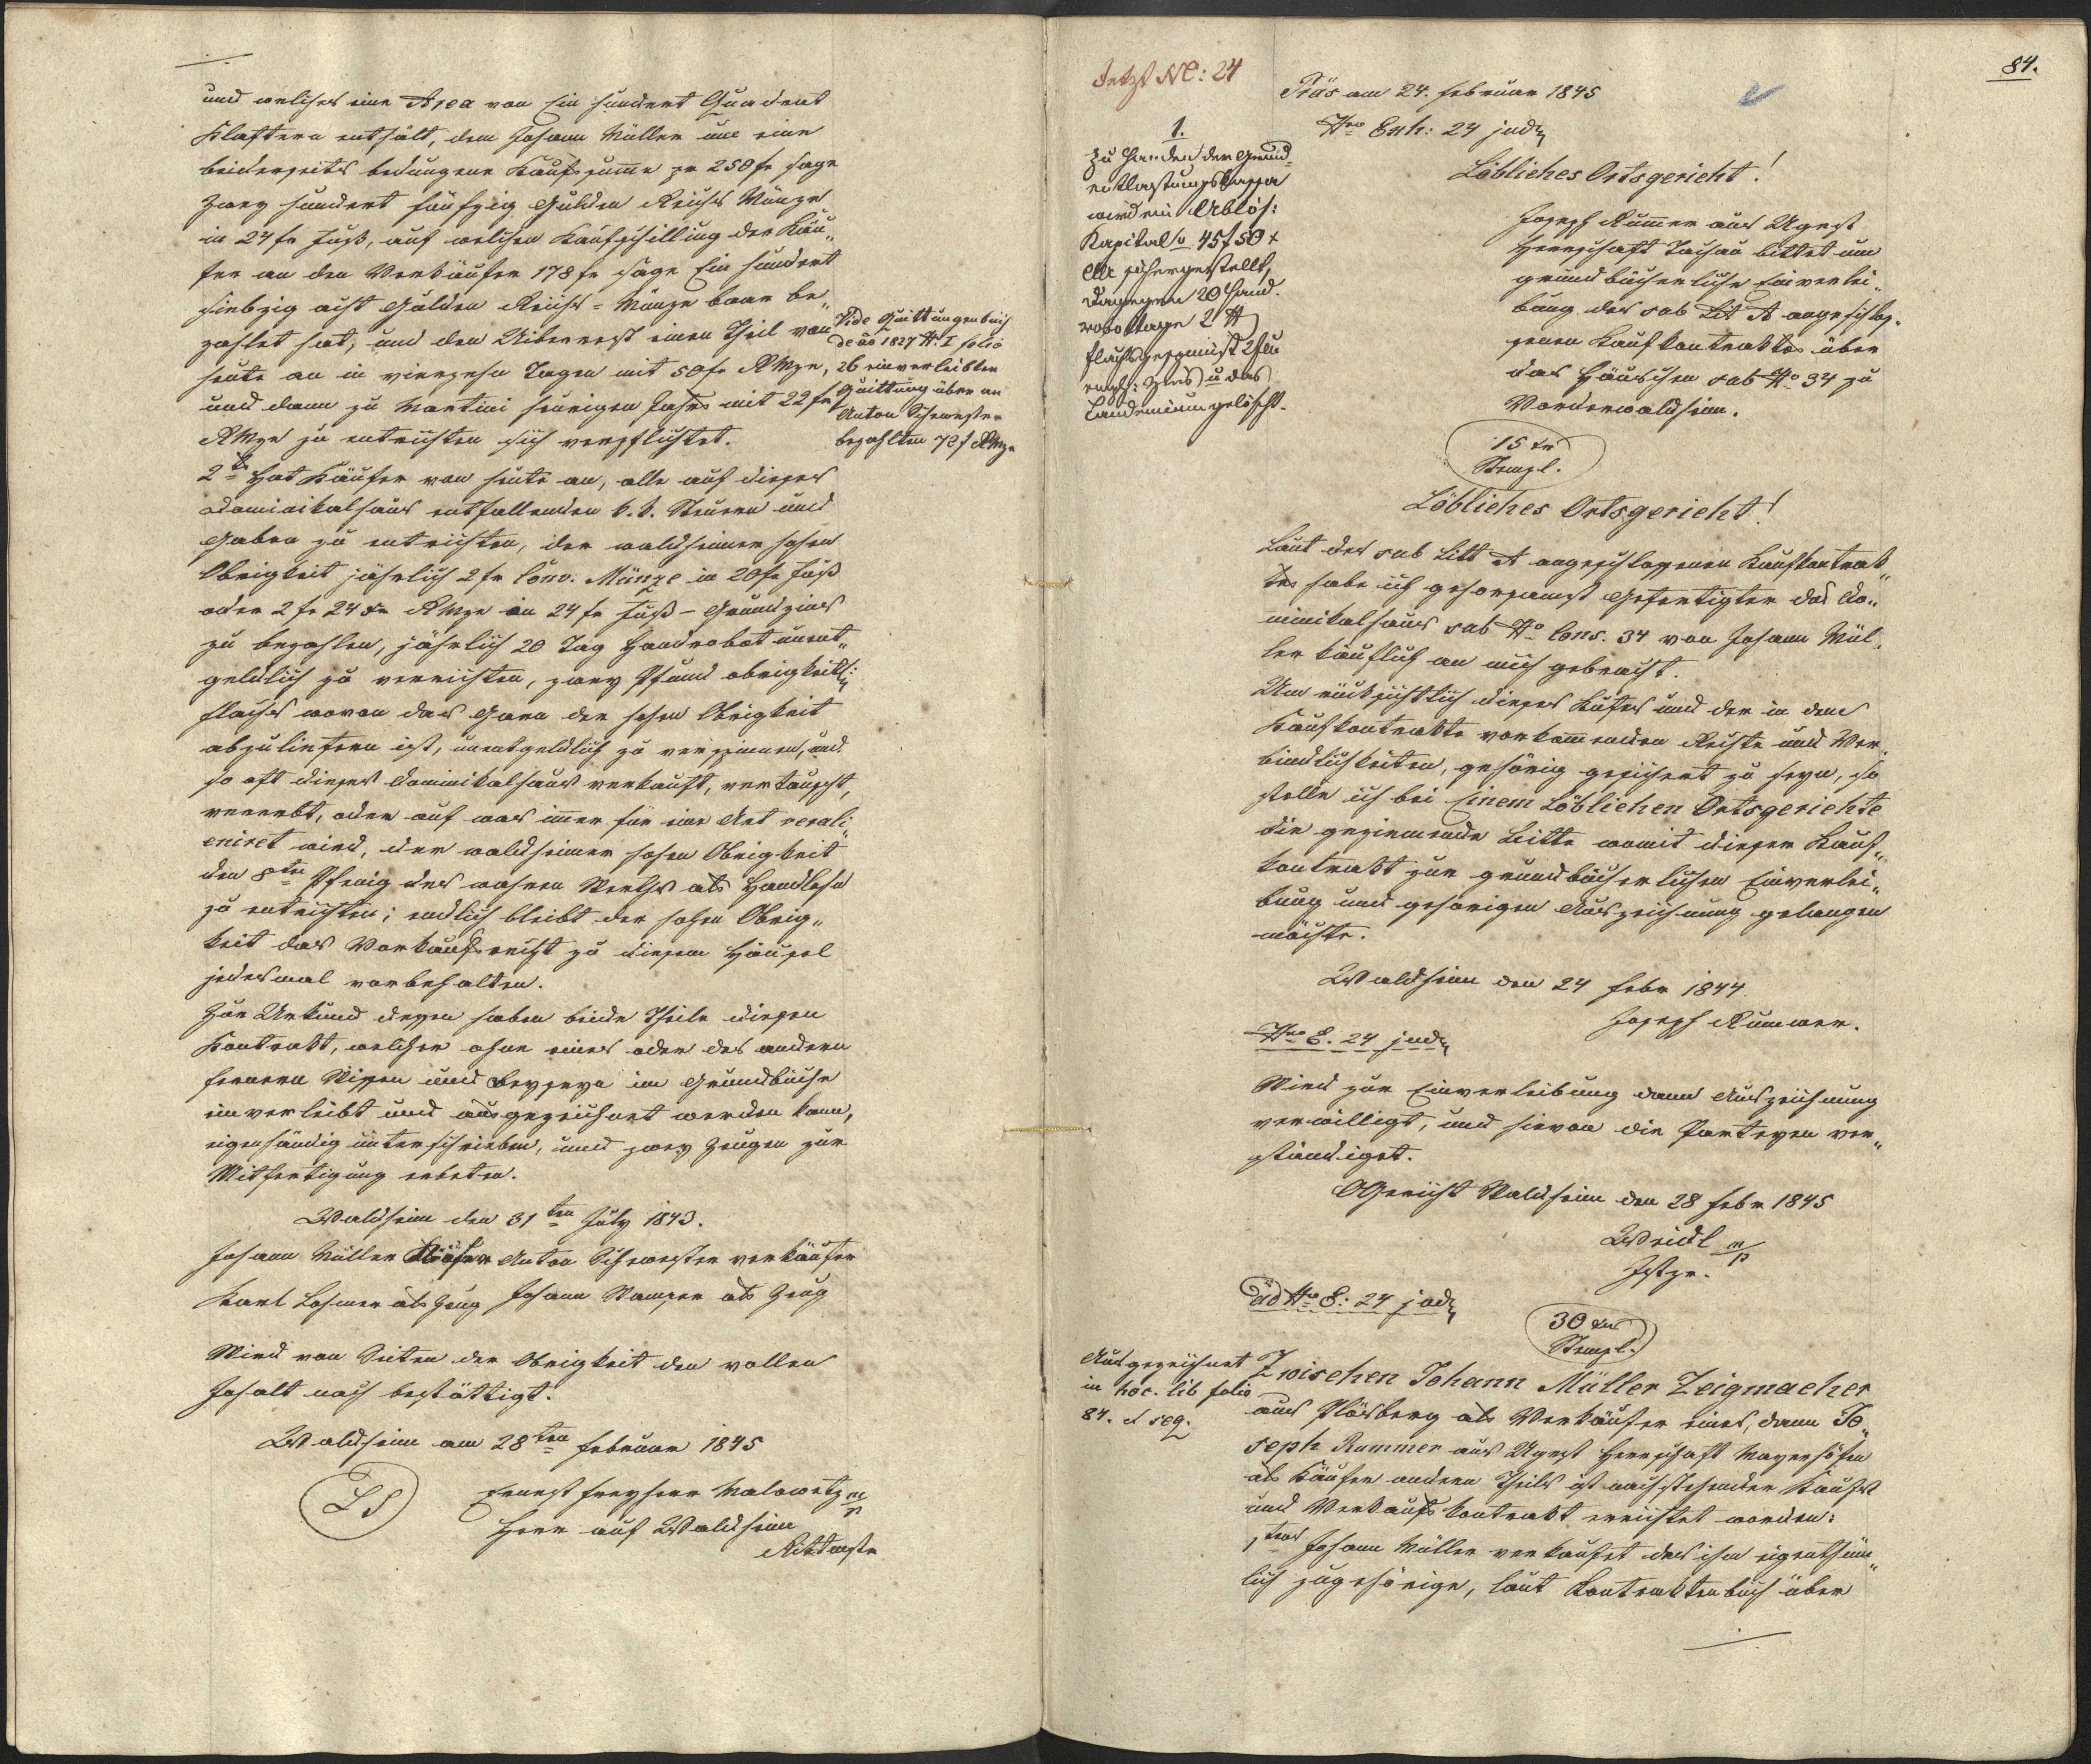 und welches eine Area von Ein hundert Quadrat
Klaftern enthält, dem Johann Müller um eine
beiderseits bedungene Kaufsumme pr 250 fr sage
zwey hundert fünfzig Gulden Reichs Münze
in 24 fr Fuß, auf welchen Kaufschilling der Käu„
fer an den Verkäufer 178 fr sage Ein hundert
siebzig acht Gulden Reichs-Münze baar be„
zahlet hat, und den Uiberrest einen Theil von
heute an in vierzehn Tagen mit 50 fr RMze,
und dann zu Martini heurigen Jahrs mit 22 fr
RMze zu entrichten sich verpflichtet.
Vide Quittungenbuch
de ao 1827 N I folio
26 einverleibten
Quittung über an
Anton Schwester
bezahlten 72 f RMze
2tens Hat Käufer von heute an, alle auf dieses
Dominikalhaus entfallenden k. k. Steuern und
Gaben zu entrichten, der waldheimer hohen
Obrigkeit jährlich 2 fr Conv. Münze in 20 fr Fuß
oder 2 fr 24 xr RMze in 24 fr Fuß - Grundzins
zu bezahlen, jährlich 20 Tag Handrobot unent„
geldlich zu verrichten, zwey Pfund obrigkeitl:
Flachs wovon das Garn der hohen Obrigkeit
abzuliefern ist, unentgeldlich zu verspinnen, und
so oft dieses Dominikalhaus verkauft, vertauscht,
vererbt, oder auf was immer für eine Art verali„
eniret wird, der waldheimer hohen Obrigkeit
den 8ten Pfenig des wahren Werthes als Handlohn
zu entrichten; endlich bleibt der hohen Obrig„
keit das Vorkaufsrecht zu diesem Häusel
jedesmal vorbehalten.
Zur Urkund dessen haben beide Theile diesen
Kontrakt, welcher ohne eines oder des andern
fernern Wissen und Beyseyn im Grundbuche
einverleibt und ausgezeichnet werden kann,
eigenhändig unterschrieben, und zwey Zeugen zur
Mitfertigung erbeten.
Waldheim den 31ten July 1843.
Johann Müller Käufer Anton Schwester verkäufer
Karl Lohmer als Zeug Johann Wamser als Zeug
Wird von Seiten der Obrigkeit den vollen
Inhalt nach bestättigt.
Waldheim am 28ten Februar 1845
LS
Ernest Freyherr Malowetz m/p
Herr auf Waldheim
Rittmstr
84.
Jetzt NC: 24
1.
Zu Handen der Grund-
entlastungskassa
wird ein Ablös:
Kapital v 45 f 50 x
CM sichergestellt,
dagegen 20 Hand-
robottage 2 ℔
Flachsgespinst 2 f
Zins u das
Laudemium gelöscht.
Präs am 24. Februar 1845
Nro Exh: 24 jud
Löbliches Ortsgericht!
Joseph Rummer aus Ugest
Herrschaft Tachau bittet um
grundbücherliche Einverlei„
bung des sub Lit A angeschlos„
senen Kaufkontraktes über
das Häuschen sub No 34 zu
Vorderwaldheim.
15 xr
Stempl.
Löbliches Ortsgericht!
Laut des sub Litt A angeschlossenen Kaufkontrak„
tes habe ich gehorsamst Gefertigter das Do„
minikalhaus sub No Cons. 34 von Johann Mül„
ler käuflich an mich gebracht.
Um rücksichtlich dieses Kaufes und der in dem
Kaufkontrakte vorkommenden Rechte und Ver„
bindlichkeiten, gehörig gesichert zu seyn, so
stelle ich bei Einem Löblichen Ortsgerichte
die geziemende Bitte womit dieser Kauf„
kontrakt zur grundbücherlichen Einverlei„
bung und gehörigen Auszeichnung gelangen
möchte.
Waldheim den 24 Febr 1844
Joseph Rummer.
Nro E. 24 jud
Wird zur Einverleibung dann Auszeichnung
verwilligt, und hievon die Partheyen ver„
ständiget.
OGericht Waldheim den 28 Febr 1845
Weidl m/p
Jstzr.
ad Nro E: 24 jud
30 xr
Stempl.
Ausgezeichnet
in hoc. lib folio
84. et seq.
Zwischen Johann Müller Zeigmacher
aus Plösberg als Verkäufer eines, dann Jo„
seph Rummer aus Ugest Herrschaft Mayerhöfen
als Käufer andern Theils ist nachstehender Kaufs
und Verkaufs kontrakt errichtet worden:
1tens Johann Müller verkaufet das ihm eigenthüm„
lich zugehörige, laut Kontraktenbuch über